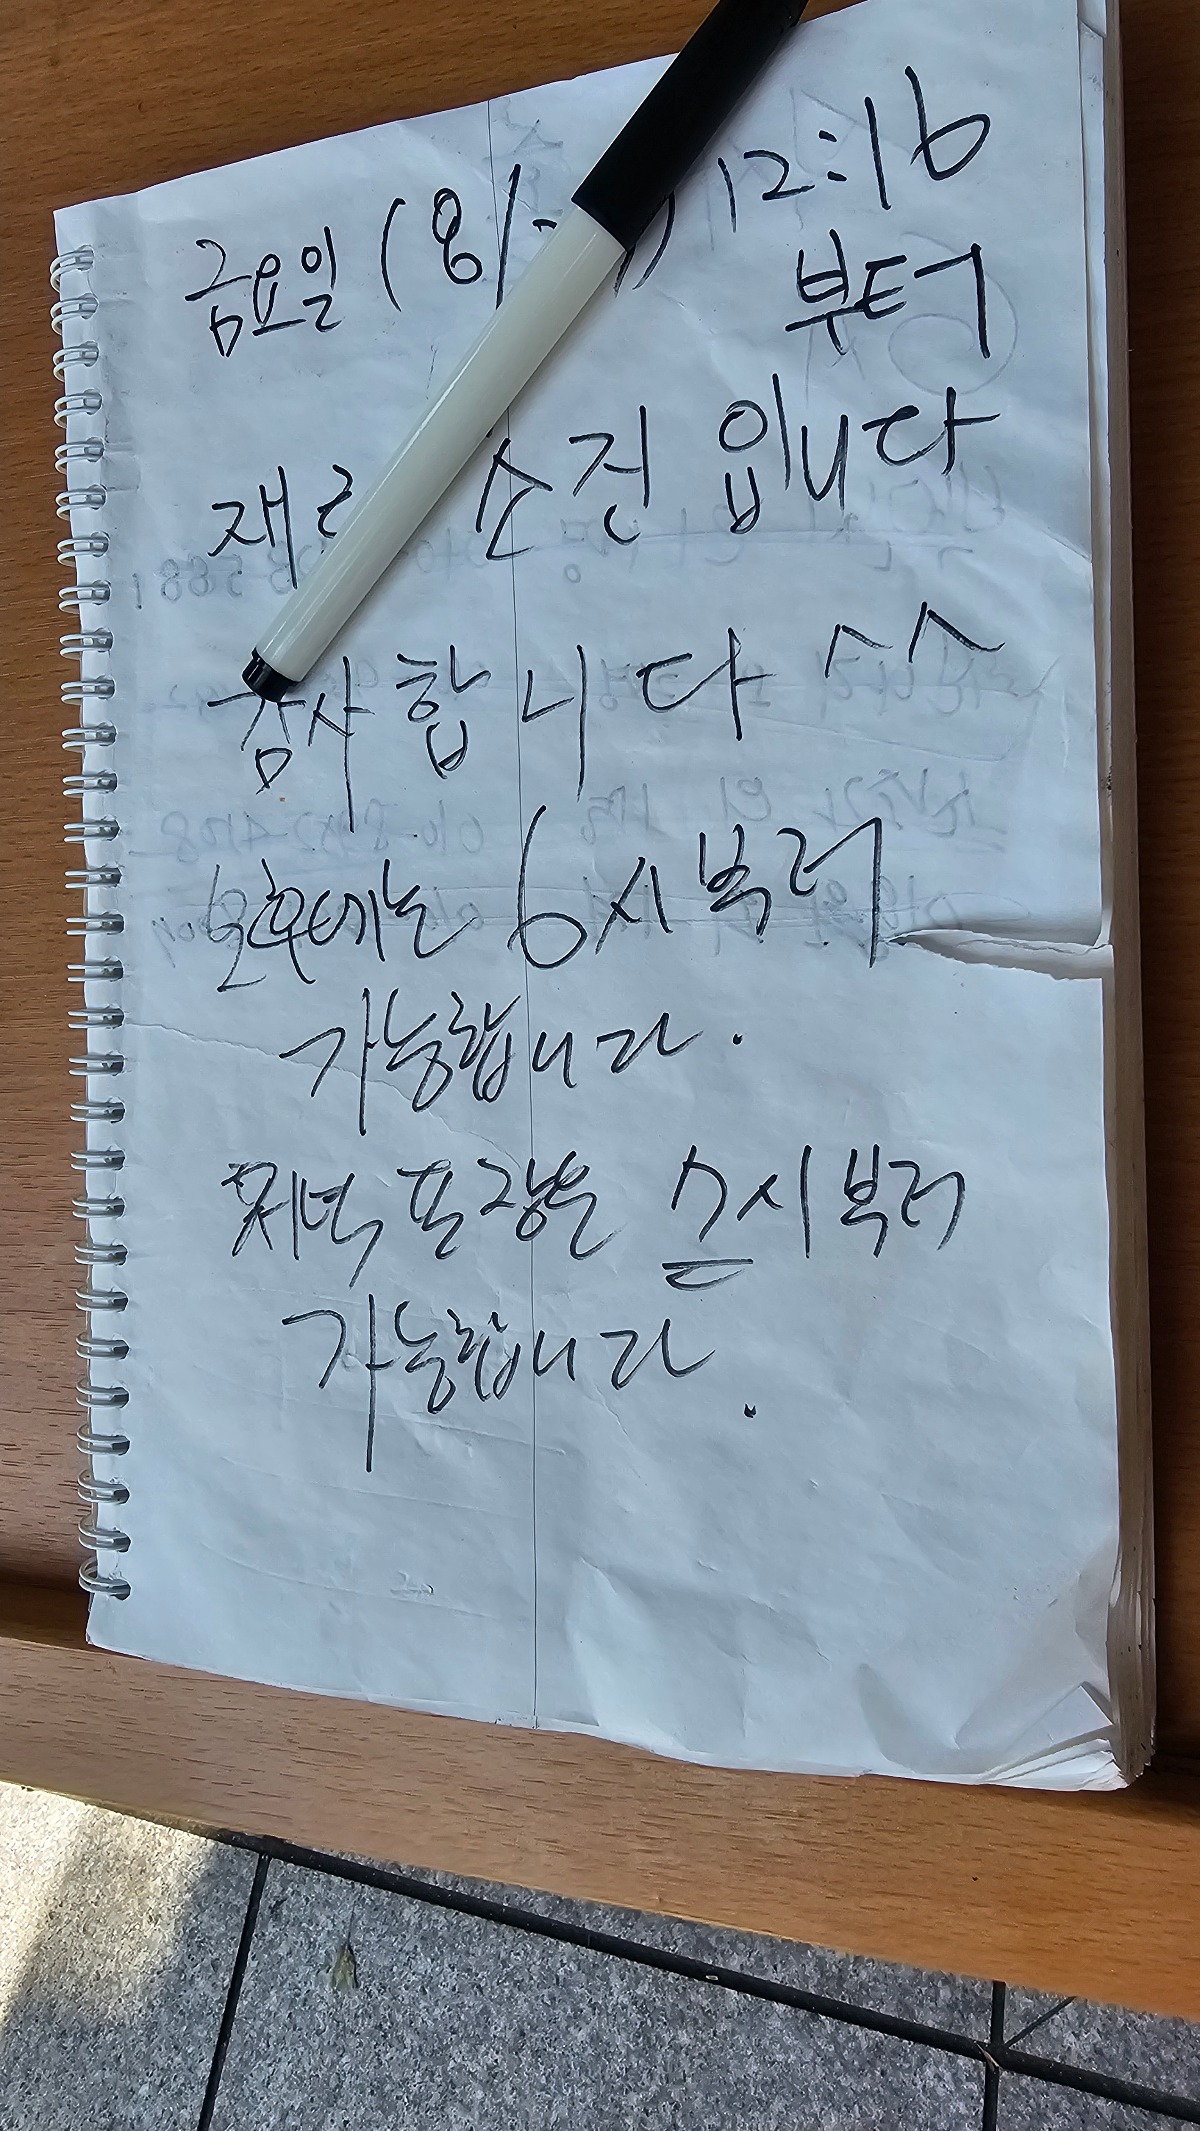 금요일 (8/ ) 12:16
부터
재료 소진 입니다
감사합니다 ^^
오후에는 6시부터
가능합니다.
저녁 포장은 5시부터
가능합니다.